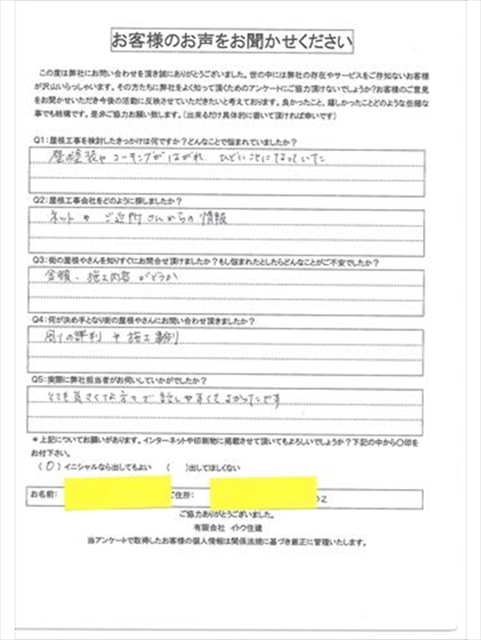 お客様のお声をお聞かせください
この度は弊社にお問い合わせを頂き誠にありがとうございました。世の中には弊社の存在やサービスをご存知ないお客様
が沢山いらっしゃいます。その方たちに弊社をよく知って頂くためのアンケートにご協力頂けないでしょうか?お客様のご意見
をお聞かせいただき今後の活動に反映させていただきたいと考えております。良かったこと、嬉しかったことどのような些細な
事でも結構です。是非ご協力お願い致します。(出来るだけ具体的に書いて頂ければ幸いです)
Q1:屋根工事を検討したきっかけは何ですか?どんなことで悩まれていましたか?
壁の塗装や コーキングがはがれ ひどいことになっていた
Q2:屋根工事会社をどのように探しましたか?
ネットや ご近所さんからの情報
Q3:街の屋根やさんを知りすぐにお問合せ頂けましたか?もし悩まれたとしたらどんなことがご不安でしたか?
金額、施工内容がどうか
Q4:何が決め手となり街の屋根やさんにお問い合わせ頂きましたか?
周りの評判や施工事例
Q5:実際に弊社担当者がお伺いしていかがでしたか?
とても気さくな方ので話しやすくてよかったです
*上記についてお願いがあります。インターネットや印刷物に掲載させて頂いてもよろしいでしょうか?下記の中から〇印を
お付下さい。
(〇)イニシャルなら出してもよい ( )出してほしくない
お名前: ご住所: 02
ご協力ありがとうございました。
有限会社 イトウ住建
当アンケートで取得したお客様の個人情報は関係法規に基づき厳正に管理いたします。